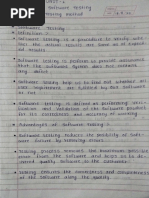 UNIT-1
Software Testing
Testing method
Software Testing
Definition :-
Software testing is a procedure to verify whether the actual results are same as of expected results.
Software testing is perform to provide assurance that the software system does not contain any defects.
Software testing help us to find out whether all user requirements are fulfilled by our software or not.
Software testing is defined as performing verification and Validation of the Software product for its correctness and accuracy of working.
Advantages of Software testing :-
Software testing reduces the possibility of software failure by removing errors.
Testing process removes maximum possible errors from the software and helps to deliver qualified software to the customers.
Testing ensures the correctness and completeness of the software along the quality.